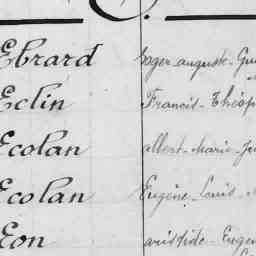 E.
Ebrard Roger-auguste-Gu
Eclin Francis-Théop
Ecolan albert-Marie-Ju
Ecolan Eugène-Louis-
Eon aristide-Eugèn